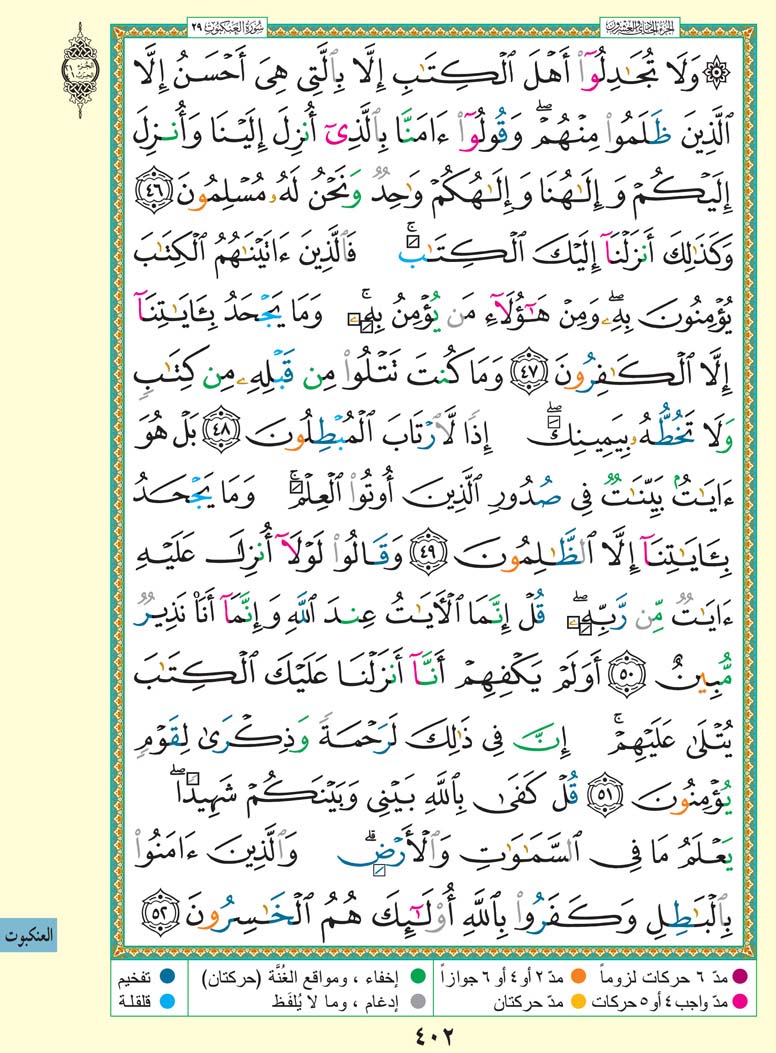 الجزء الحادي والعشرون
سُورَةُ العَنكَبُوت ٢٩
۞ وَلَا تُجَٰدِلُوٓا۟ أَهْلَ ٱلْكِتَٰبِ إِلَّا بِٱلَّتِى هِىَ أَحْسَنُ إِلَّا
ٱلَّذِينَ ظَلَمُوا۟ مِنْهُمْ ۖ وَقُولُوٓا۟ ءَامَنَّا بِٱلَّذِىٓ أُنزِلَ إِلَيْنَا وَأُنزِلَ
إِلَيْكُمْ وَإِلَٰهُنَا وَإِلَٰهُكُمْ وَٰحِدٌ وَنَحْنُ لَهُۥ مُسْلِمُونَ ٤٦
وَكَذَٰلِكَ أَنزَلْنَآ إِلَيْكَ ٱلْكِتَٰبَ ۚ فَٱلَّذِينَ ءَاتَيْنَٰهُمُ ٱلْكِتَٰبَ
يُؤْمِنُونَ بِهِۦ ۖ وَمِنْ هَٰٓؤُلَآءِ مَن يُؤْمِنُ بِهِۦ ۚ وَمَا يَجْحَدُ بِـَٔايَٰتِنَآ
إِلَّا ٱلْكَٰفِرُونَ ٤٧ وَمَا كُنتَ تَتْلُوا۟ مِن قَبْلِهِۦ مِن كِتَٰبٍ
وَلَا تَخُطُّهُۥ بِيَمِينِكَ ۖ إِذًا لَّٱرْتَابَ ٱلْمُبْطِلُونَ ٤٨ بَلْ هُوَ
ءَايَٰتٌۢ بَيِّنَٰتٌ فِى صُدُورِ ٱلَّذِينَ أُوتُوا۟ ٱلْعِلْمَ ۚ وَمَا يَجْحَدُ
بِـَٔايَٰتِنَآ إِلَّا ٱلظَّٰلِمُونَ ٤٩ وَقَالُوا۟ لَوْلَآ أُنزِلَ عَلَيْهِ
ءَايَٰتٌ مِّن رَّبِّهِۦ ۖ قُلْ إِنَّمَا ٱلْءَايَٰتُ عِندَ ٱللَّهِ وَإِنَّمَآ أَنَا۠ نَذِيرٌ
مُّبِينٌ ٥٠ أَوَلَمْ يَكْفِهِمْ أَنَّآ أَنزَلْنَا عَلَيْكَ ٱلْكِتَٰبَ
يُتْلَىٰ عَلَيْهِمْ ۚ إِنَّ فِى ذَٰلِكَ لَرَحْمَةً وَذِكْرَىٰ لِقَوْمٍ
يُؤْمِنُونَ ٥١ قُلْ كَفَىٰ بِٱللَّهِ بَيْنِى وَبَيْنَكُمْ شَهِيدًا ۖ
يَعْلَمُ مَا فِى ٱلسَّمَٰوَٰتِ وَٱلْأَرْضِ ۗ وَٱلَّذِينَ ءَامَنُوا۟
بِٱلْبَٰطِلِ وَكَفَرُوا۟ بِٱللَّهِ أُو۟لَٰٓئِكَ هُمُ ٱلْخَٰسِرُونَ ٥٢
العنكبوت
مدّ ٦ حركات لزوماً مدّ ٢ أو ٤ أو ٦ جوازاً إخفاء ، ومواقع الغُنَّة (حركتان) تفخيم
مدّ واجب ٤ أو ٥ حركات مدّ حركتان إدغام ، وما لا يُلفَظ قلقلة
٤٠٢